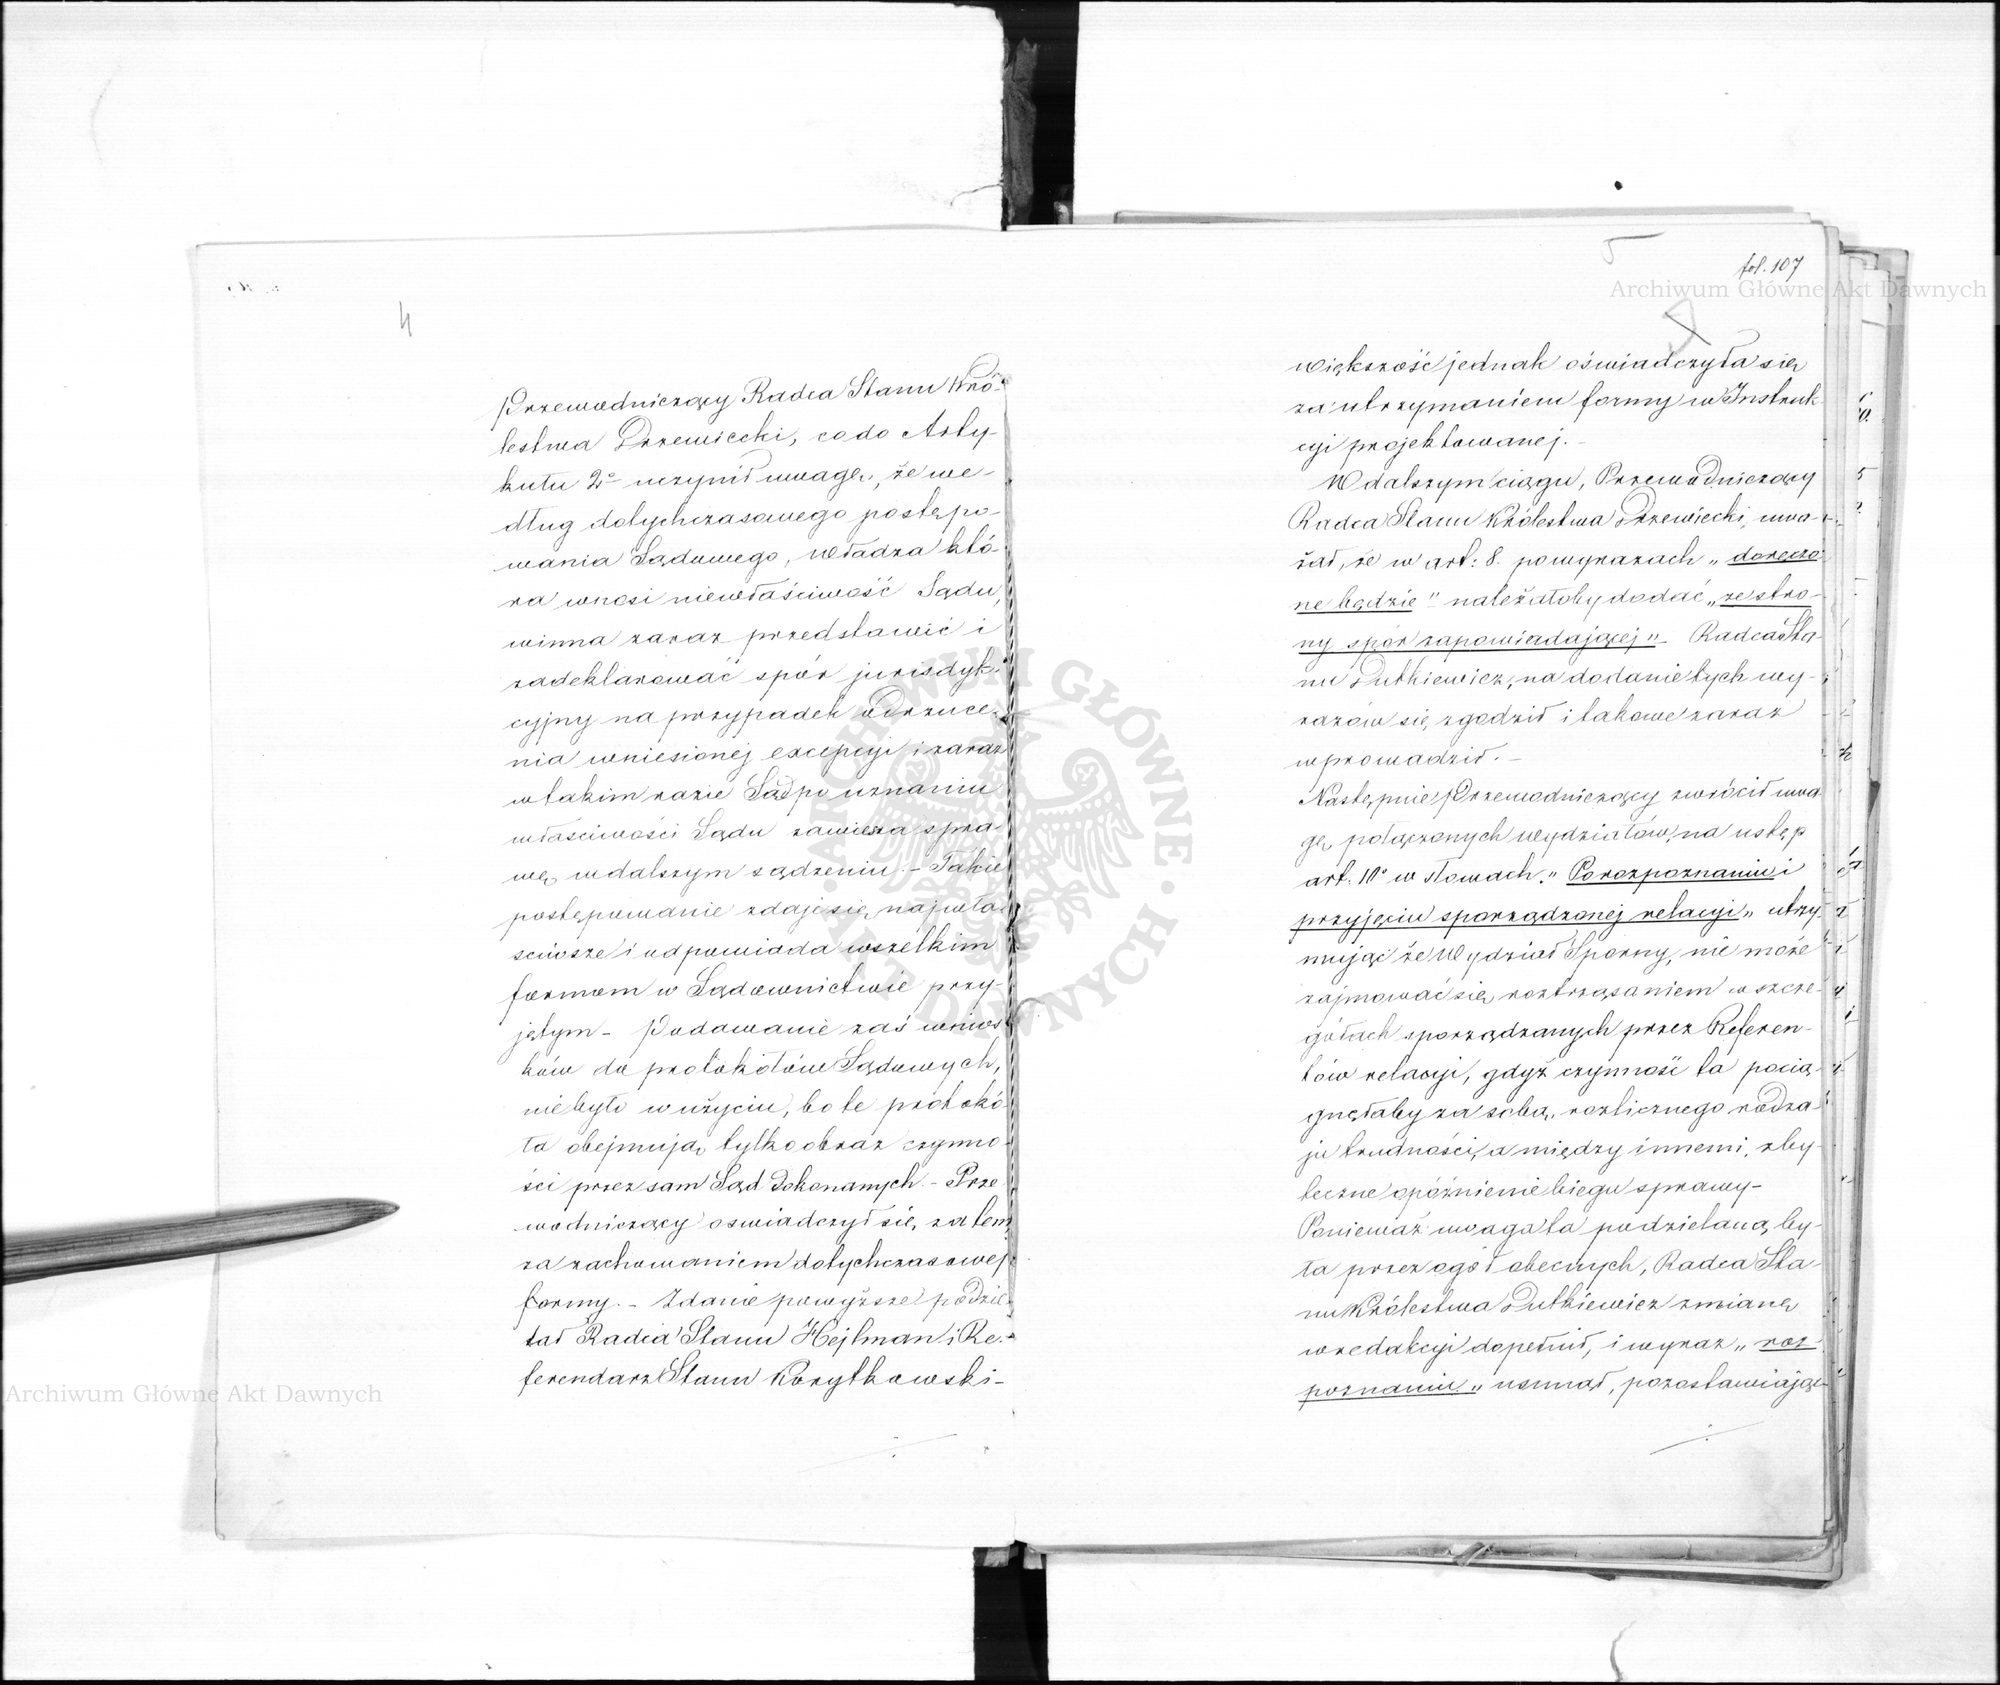 4
Przewodniczący Radca Stanu Kró-
lestwa Drzewiecki, co do Arty-
kułu 2° uczynił uwagę, że we-
dług dotychczasowego postępo-
wania Sądowego, Władza któ-
ra wnosi niewłaściwość Sądu,
winna zaraz przedstawić i
zadeklarować spór jurisdyk-
cyjny na przypadek odrzuce-
nia wniesionej excepcyi i zaraz
w takim razie Sąd po uznaniu
właściwości Sądu zawiesza spra-
wę w dalszym sądzeniu. - Takie
postępowanie zdaje się najwła-
sciwsze i odpowiada wszelkim
formom w Sądownictwie przy-
jętym - Podawanie zaś wnios-
ków do protokółów Sądowych,
nie było w użyciu, bo te protokó-
ła obejmują tylko obraz czynno-
ści przez sam Sąd dokonanych. - Prze-
wodniczący oswiadczył się zatem
za zachowaniem dotychczasowej
formy. - Zdanie powyższe podzie-
lał Radca Stanu Hejlman i Re-
ferendarz Stanu Korytkowski -
5
fol. 107
większość jednak oświadczyła się
za utrzymaniem formy w Instruk-
cyi projektowanej. -
W dalszym ciągu, Przewodniczący
Radca Stanu Królestwa Drzewiecki, uwa-
żał, że w art: 8. po wyrazach „doręczo
ne będzie" należałoby dodać „ze stro-
ny spór zapowiadającej" - Radca Sta-
nu Dutkiewicz, na dodanie tych wy-
razów się zgodził i takowe zaraz
wprowadził. -
Następnie Przewodniczący zwrócił uwa
gę połączonych wydziałów, na ustęp
art. 10° w słowach „Po rozpoznaniu i
przyjęciu sporządzonej relacyi" utrzy-
mując że Wydział Sporny, nie może
zajmować się roztrząsaniem w szcze-
gółach sporządzanych przez Referen-
tów relacyi, gdyż czynność ta pocią-
gnęłaby za sobą rozlicznego rodza-
ju trudności, a między innemi, zby-
teczne opóźnienie biegu sprawy -
Ponieważ uwaga ta podzielaną by-
ła przez ogół obecnych, Radca Sta-
nu Królestwa Dutkiewicz zmianę
w redakcyi dopełnił, i wyraz „roz-
poznaniu" usunął, pozostawiając
Archiwum Główne Akt Dawnych
Archiwum Główne Akt Dawnych
ARCHIWUM GŁÓWNE · AKT DAWNYCH ·